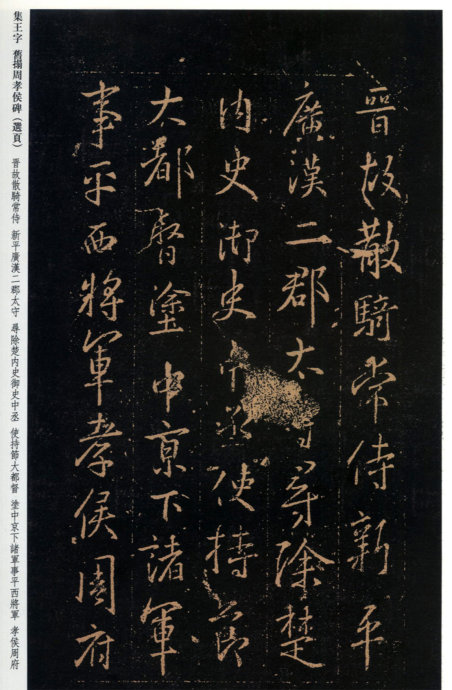 集王字 舊搨周孝侯碑(選頁) 晋故散騎常侍 新平廣漢二郡太守 尋除楚内史御史中丞 使持節大都督 塗中京下諸軍事平西將軍 孝侯周府
晉故散騎常侍新平
廣漢二郡太守尋除楚
内史御史中丞使持節
大都督塗中京下諸軍
事平西將軍孝侯周府